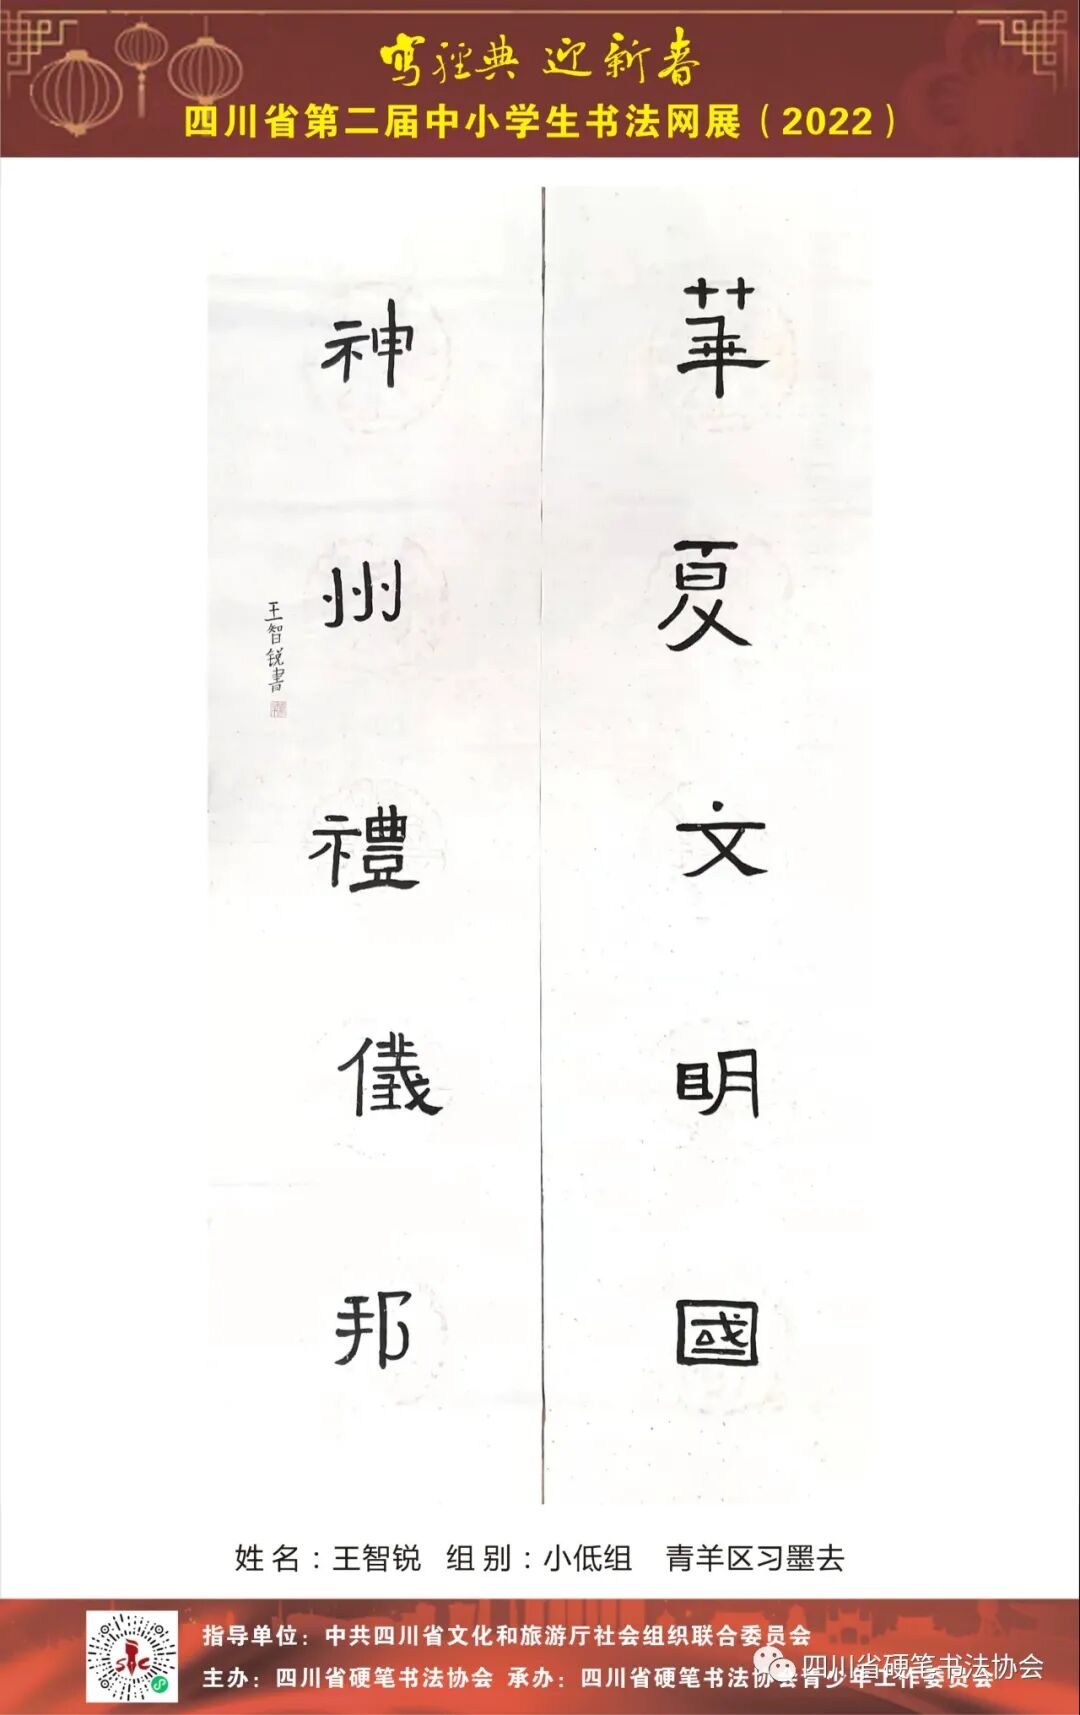 写经典 迎新春
四川省第二届中小学生书法网展（2022）
華夏文明國
神州禮儀邦
王智锐書
姓名：王智锐 组别：小低组 青羊区习墨去
指导单位：中共四川省文化和旅游厅社会组织联合委员会
主办：四川省硬笔书法协会 承办：四川省硬笔书法协会青少年工作委员会
四川省硬笔书法协会